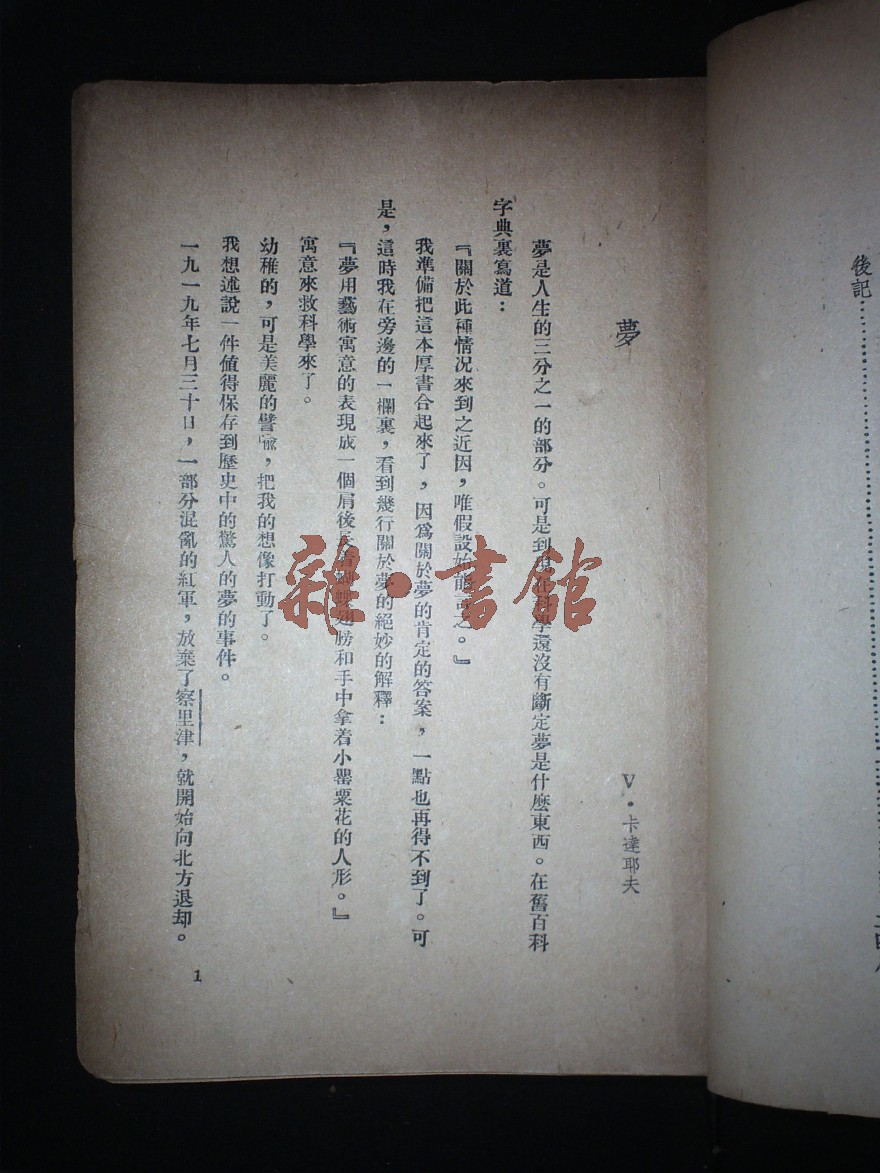 後記……………………
夢
V・卡達耶夫
夢是人生的三分之一的部分。可是到現在科學還沒有斷定夢是什麼東西。在舊百科
字典裏寫道：
『關於此種情況來到之近因，唯假設始能言之。』
我準備把這本厚書合起來了，因爲關於夢的肯定的答案，一點也再得不到了。可
是，這時我在旁邊的一欄裏，看到幾行關於夢的絕妙的解釋：
『夢用藝術寓意的表現成一個肩後長着蝴蝶翅膀和手中拿着小罌粟花的人形。』
寓意來救科學來了。
幼稚的，可是美麗的譬喩，把我的想像打動了。
我想述說一件値得保存到歷史中的驚人的夢的事件。
一九一九年七月三十日，一部分混亂的紅軍，放棄了察里津，就開始向北方退却。
1
雜·書館